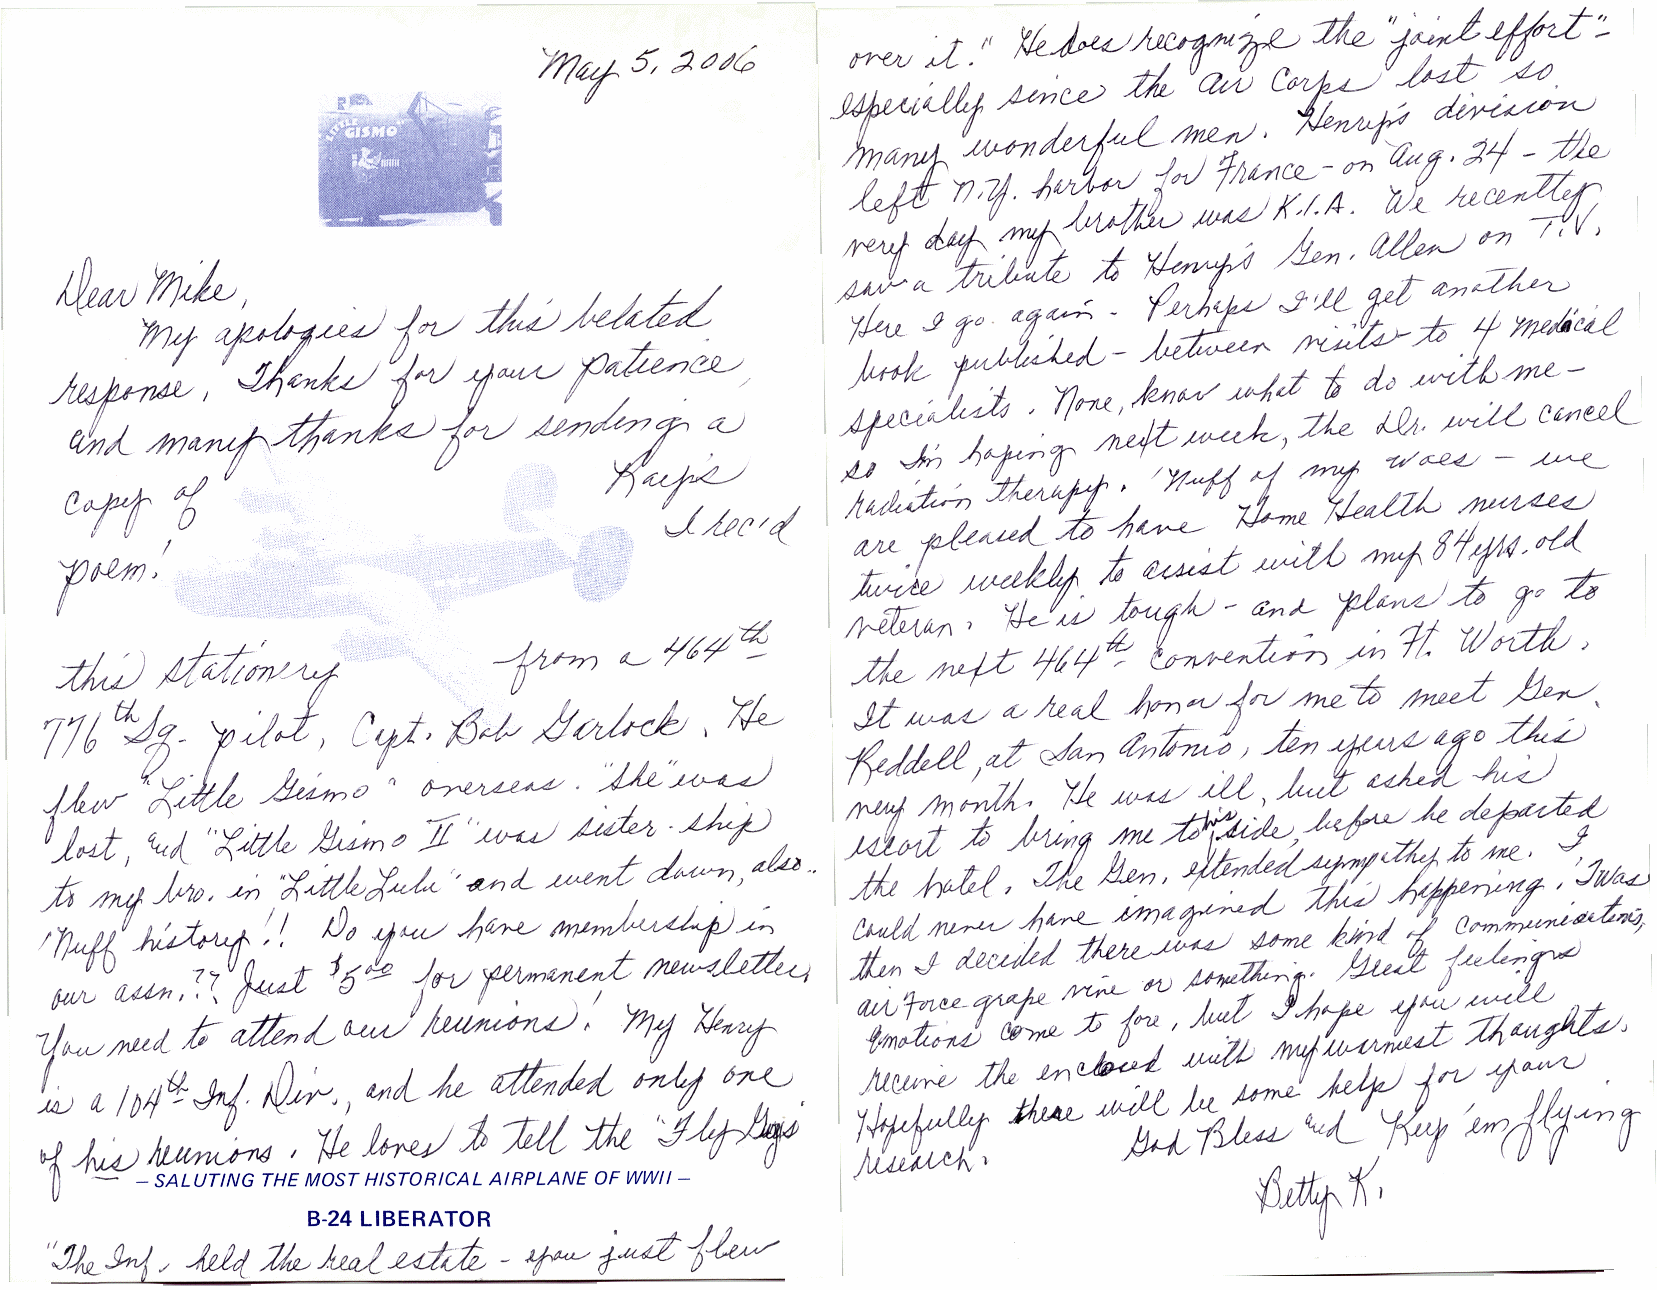 May 5, 2006
"LITTLE
GISMO"
Dear Mike,
My apologies for this belated
response. Thanks for your patience,
and many thanks for sending a
copy of Ray's
poem! I rec'd
this stationery from a 464th
776th Sq. pilot, Capt. Bob Garlock. He
flew "Little Gismo" overseas. "She" was
lost, and "Little Gismo II" was sister-ship
to my bro. in "Little Lulu" and went down, also..
'Nuff history!! Do you have membership in
our assn.?? Just $5.00 for permanent newsletter,
You need to attend our reunions! My Henry
is a 104th Inf. Div., and he attended only one
of his reunions. He loves to tell the "Fly Guys"
– SALUTING THE MOST HISTORICAL AIRPLANE OF WWII –
B-24 LIBERATOR
"The Inf. held the real estate - you just flew
over it." He does recognize the "joint effort"-
especially since the Air Corps lost so
many wonderful men. Henry's division
left N.Y. harbor for France - on Aug. 24 - the
very day my brother was K.I.A. We recently
saw a tribute to Henry's Gen. Allen on T.V.
Here I go again - Perhaps I'll get another
book published - between visits to 4 medical
specialists. None, know what to do with me -
so I'm hoping next week, the Dr. will cancel
radiation therapy. 'Nuff of my woes - we
are pleased to have Home Health nurses
twice weekly to assist with my 84 yrs. old
veteran. He is tough - and plans to go to
the next 464th convention in Ft. Worth.
It was a real honor for me to meet Gen.
Reddell, at San Antonio, ten years ago this
very month. He was ill, but asked his
escort to bring me to his side, before he departed
the hotel. The Gen. extended sympathy to me. I
could never have imagined this happening. 'Twas
then I decided there was some kind of communications,
air Force grape vine or something. Great feelings
emotions come to fore, but I hope you will
receive the enclosed with my warmest thoughts.
Hopefully there will be some help for your
research. God Bless and Keep 'em flying
Betty K.